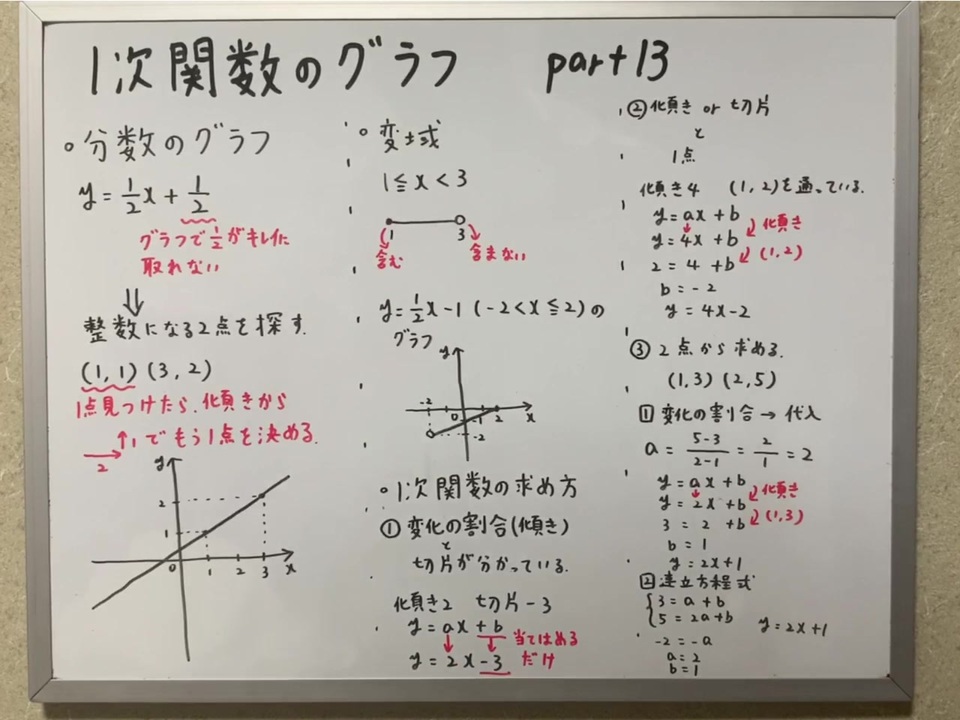 1次関数のグラフ part13
○分数のグラフ
y=1/2x+1/2
グラフで1/2がキレイに
取れない
⇓
整数になる2点を探す.
(1,1)(3,2)
1点見つけたら,傾きから
→2 ↑1でもう1点を決める.
y
2
1
0 1 2 3 x
○変域
1≦x<3
1 3
含む 含まない
y=1/2x-1 (-2<x≦2)の
グラフ
y
-2 0 -1 2 x
-2
○1次関数の求め方
①変化の割合(傾き)
と
切片が分かっている.
傾き2 切片-3
y=ax+b
↓ ↓ 当てはめる
y=2x-3 だけ
②傾き or 切片
と
1点
傾き4 (1,2)を通っている.
y=ax+b
傾き
y=4x+b
(1,2)
2=4+b
b=-2
y=4x-2
③2点から求める.
(1,3)(2,5)
1 変化の割合→代入
a=5-3/2-1=2/1=2
y=ax+b
傾き
y=2x+b
(1,3)
3=2+b
b=1
y=2x+1
2 連立方程式
{3=a+b
5=2a+b y=2x+1
-2=-a
a=2
b=1